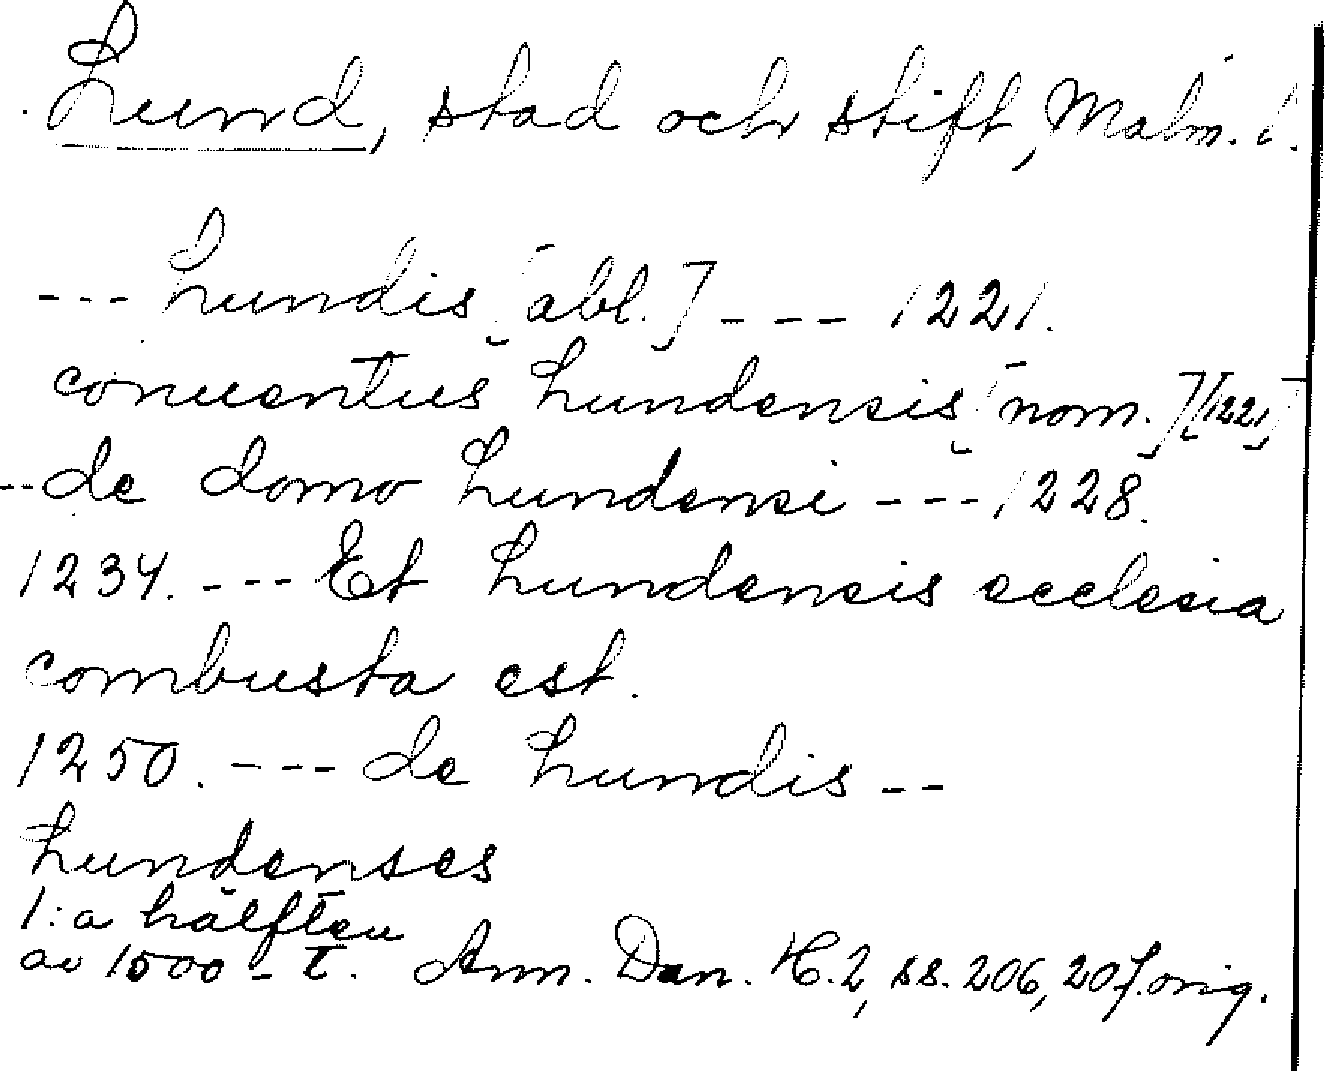 Lund, stad och stift, Malm. l.
--- Lundis [abl.] --- 1221.
conuentus Lundensis [nom.] [1221]
-- de domo Lundensi --- 1228.
1234. --- Et Lundensis ecclesia
combusta est.
1250. --- de Lundis --
Lundenses
1:a hälften
av 1500-t. Ann. Dan. H. 2, ss. 206, 207. orig.